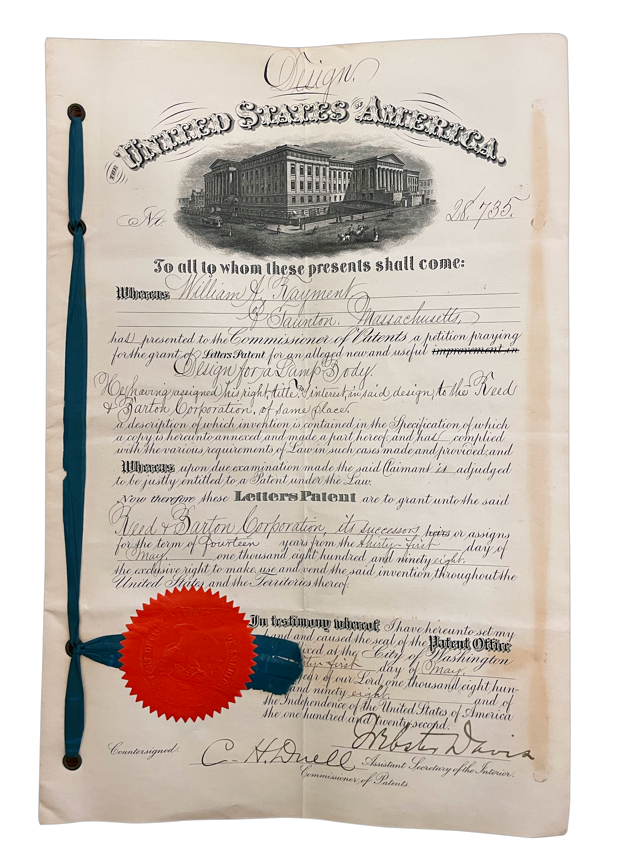 Design.
THE UNITED STATES OF AMERICA.
No. 28,735.
To all to whom these presents shall come:
Whereas William A. Rayment,
of Taunton, Massachusetts,
has presented to the Commissioner of Patents a petition praying
for the grant of Letters Patent for an alleged new and useful improvement in
Design for a Lamp Body.
He having assigned his right, title and interest, in said design, to the Reed
& Barton Corporation, of same place,
a description of which invention is contained in the Specification of which
a copy is hereunto annexed and made a part hereof, and has complied
with the various requirements of Law in such cases made and provided, and
Whereas upon due examination made the said Claimant is adjudged
to be justly entitled to a Patent under the Law.
Now therefore these Letters Patent are to grant unto the said
Reed & Barton Corporation, its successors heirs or assigns
for the term of fourteen years from the thirty-first day of
May, one thousand eight hundred and ninety eight,
the exclusive right to make, use and vend the said invention throughout the
United States and the Territories thereof.
In testimony whereof I have hereunto set my
hand and caused the seal of the Patent Office
xed at the City of Washington
ty-first day of May,
year of our Lord one thousand eight hun-
and ninety eight, and of
the Independence of the United States of America
the one hundred and twenty second.
Webster Davis
Assistant Secretary of the Interior.
Countersigned:
C. H. Duell
Commissioner of Patents.